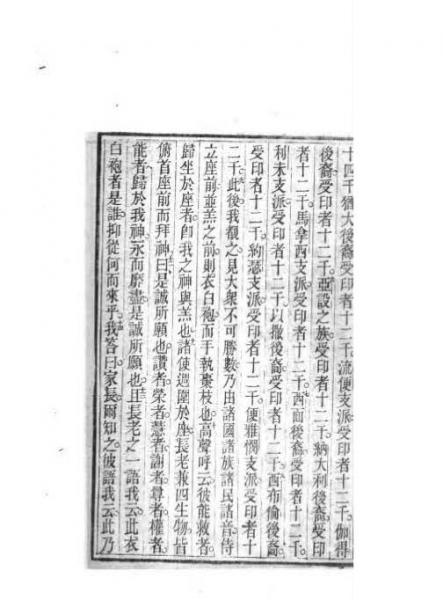 十四千猶大後裔受印者十二千。流便支派受印者十二千。伽得
後裔受印者十二千。亞設之族受印者十二千。納大利後裔受印
者十二千。馬拿西支派受印者十二千。西面後裔受印者十二千。
利未支派受印者十二千。以撒後裔受印者十二千。西布倫後裔
受印者十二千。約瑟支派受印者十二千。便雅憫支派受印者十
二千。此後我觀之見大衆不可勝數乃由諸國諸族諸民諸音侍
立座前並羔之前。則衣白袍而手執棗枝也。高聲呼云。彼能救者。
歸坐於座者卽我之神與羔也。諸使週圍於座。長老兼四生物皆
俯首座前而拜神曰。是誠所願也。讚者。榮者。慧者。謝者。尊者。權者。
能者。歸於我神。永而靡盡。是誠所願也。且長老之一語我云。此衣
白袍者是誰。抑從何而來乎。我答曰。家長。爾知之。彼語我云。此乃